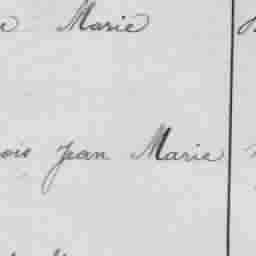 Marie
ois Jean Marie